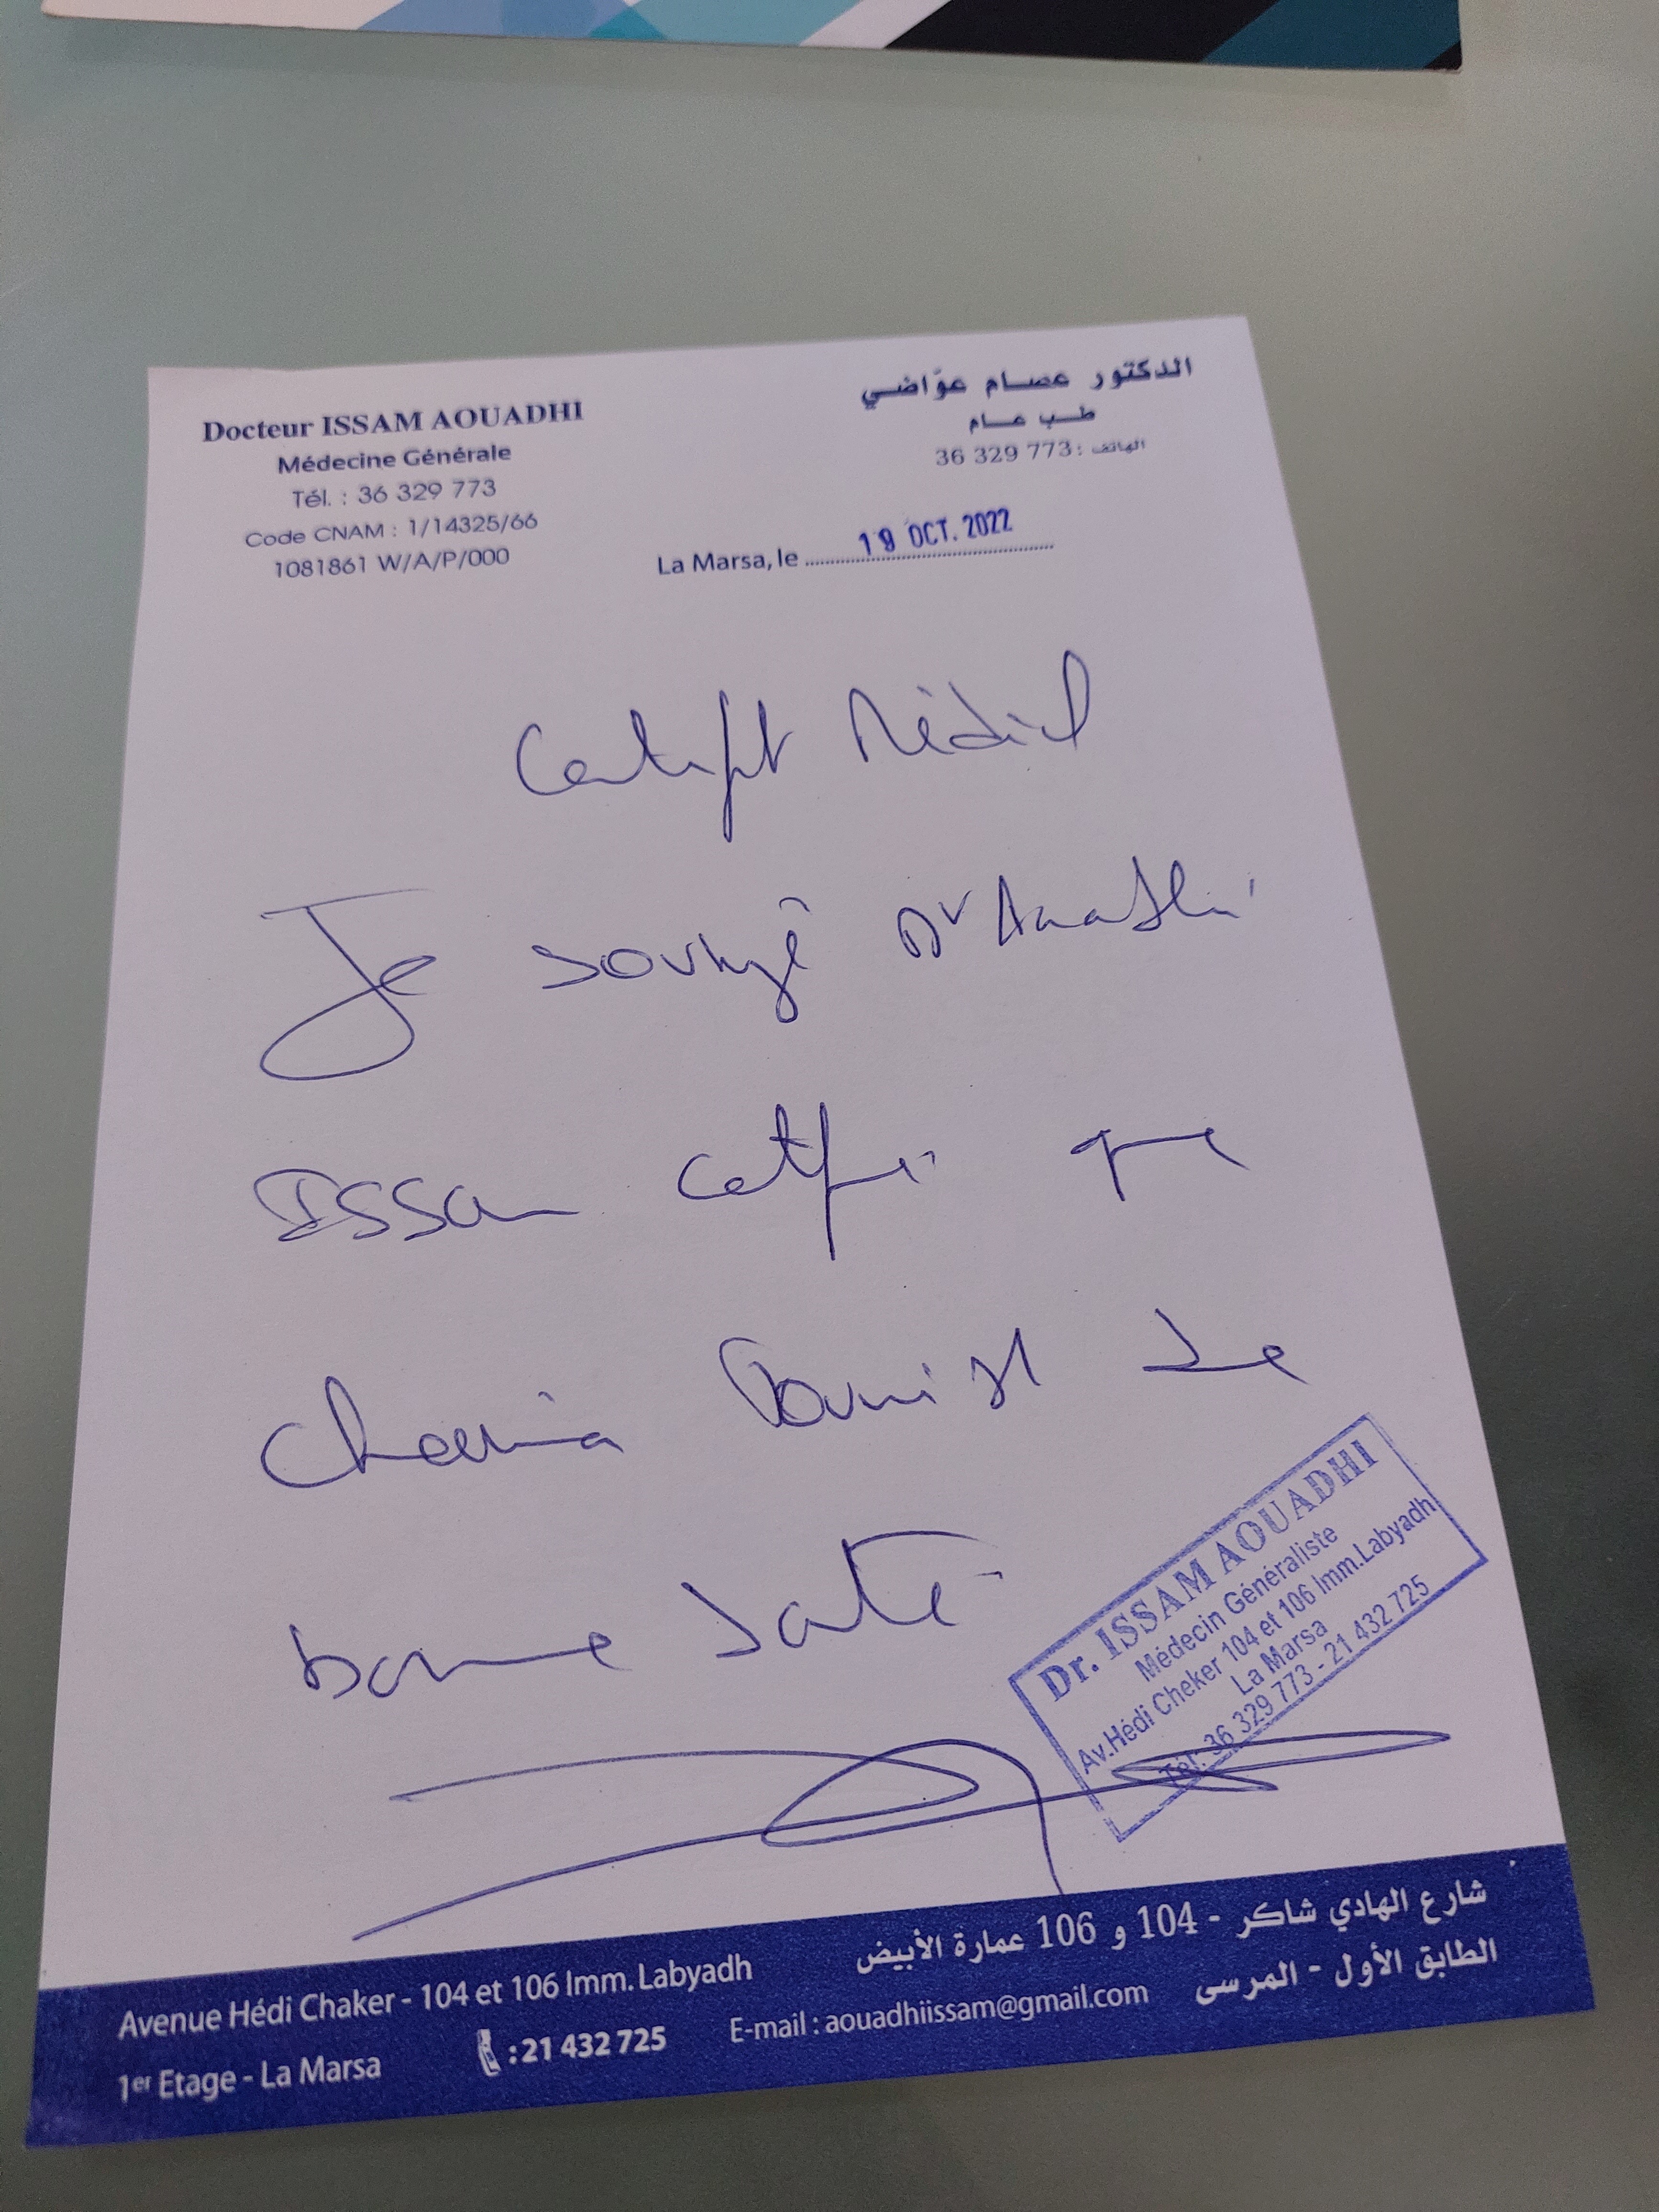 Docteur ISSAM AOUADHI
Médecine Générale
Tél. : 36 329 773
Code CNAM : 1/14325/66
1081861 W/A/P/000
الدكتور عصام عوّاضي
طب عام
الهاتف : 36 329 773
La Marsa, le 19 OCT. 2022
Certificat Médical
Je soussigné Dr Aouadhi
Issam certifie que
est de
bonne santé
Dr. ISSAM AOUADHI
Médecin Généraliste
Av.Hédi Cheker 104 et 106 Imm.Labyadh
La Marsa
Tél: 36 329 773 - 21 432 725
شارع الهادي شاكر - 104 و 106 عمارة الأبيض
الطابق الأول - المرسى
Avenue Hédi Chaker - 104 et 106 Imm. Labyadh
1er Etage - La Marsa
: 21 432 725
E-mail : aouadhiissam@gmail.com